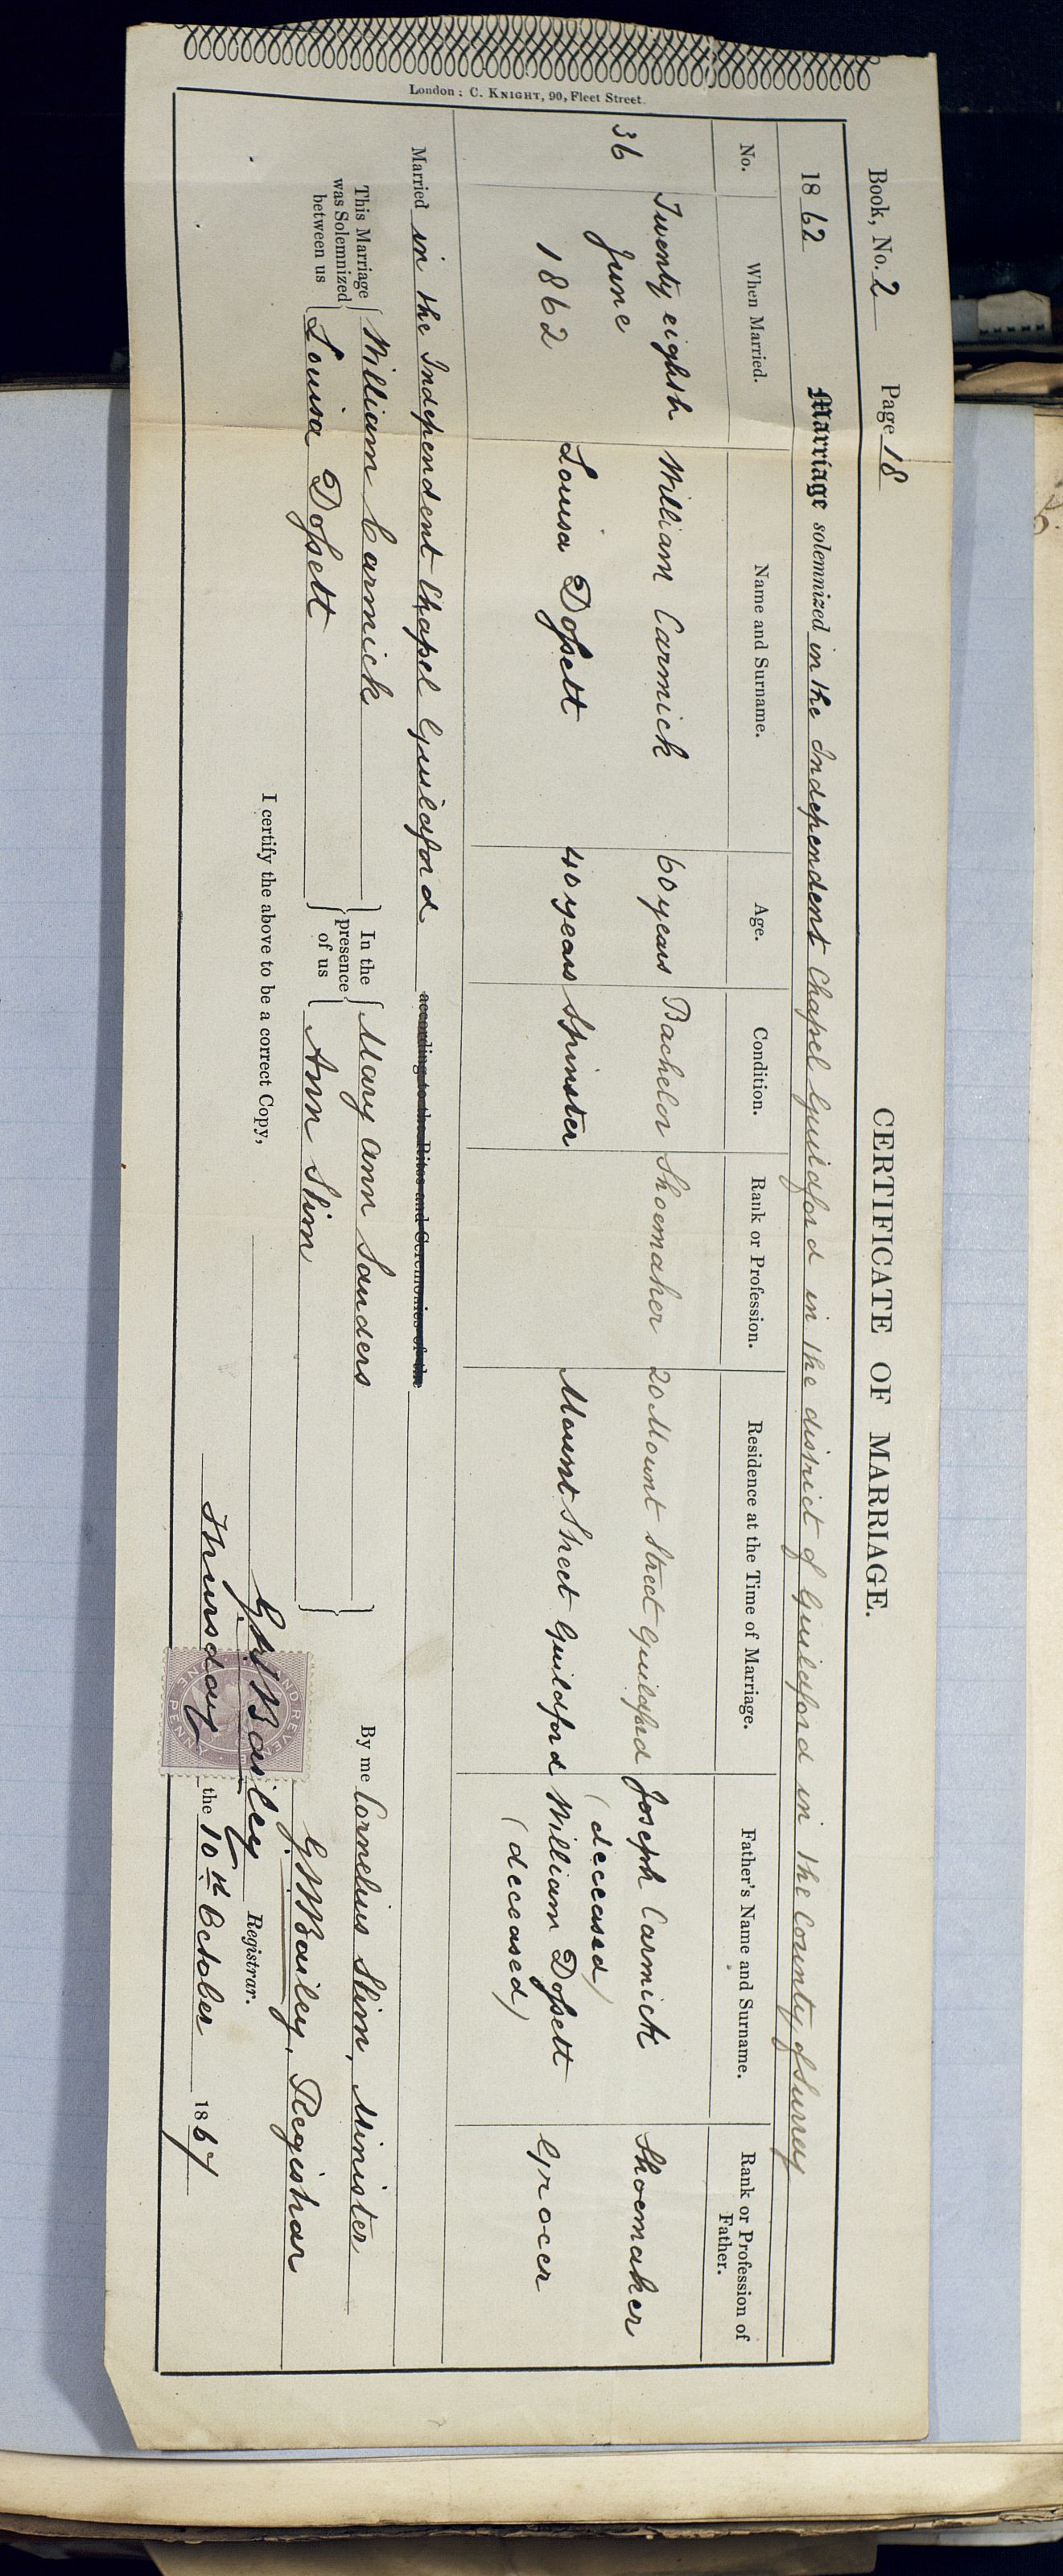 London: C. KNIGHT, 90, Fleet Street.
CERTIFICATE OF MARRIAGE.
Book, No. 2 Page 18
1862 Marriage solemnized in the Independent Chapel Guildford in the district of Guildford in the County of Surrey
No. When Married. Name and Surname. Age. Condition. Rank or Profession. Residence at the Time of Marriage. Father's Name and Surname. Rank or Profession of Father.
36 Twenty eighth June 1862 William Carmick 60 years Bachelor Shoemaker 20 Mount Street Guildford Joseph Carmick (deceased) Shoemaker
Louisa Doſsett 40 years Spinster Mount Street Guildford William Doſsett (deceased) Grocer
Married in the Independent Chapel Guildford according to the Rites and Ceremonies of the
This Marriage was Solemnized between us William Carmick Louisa Doſsett In the presence of us Mary Ann Sanders Ann Slim By me Cornelius Slim, Minister
Bailey, Registrar
I certify the above to be a correct Copy,
Bailey Registrar.
Thursday the 10th October 1867
INLAND REVENUE
ONE PENNY